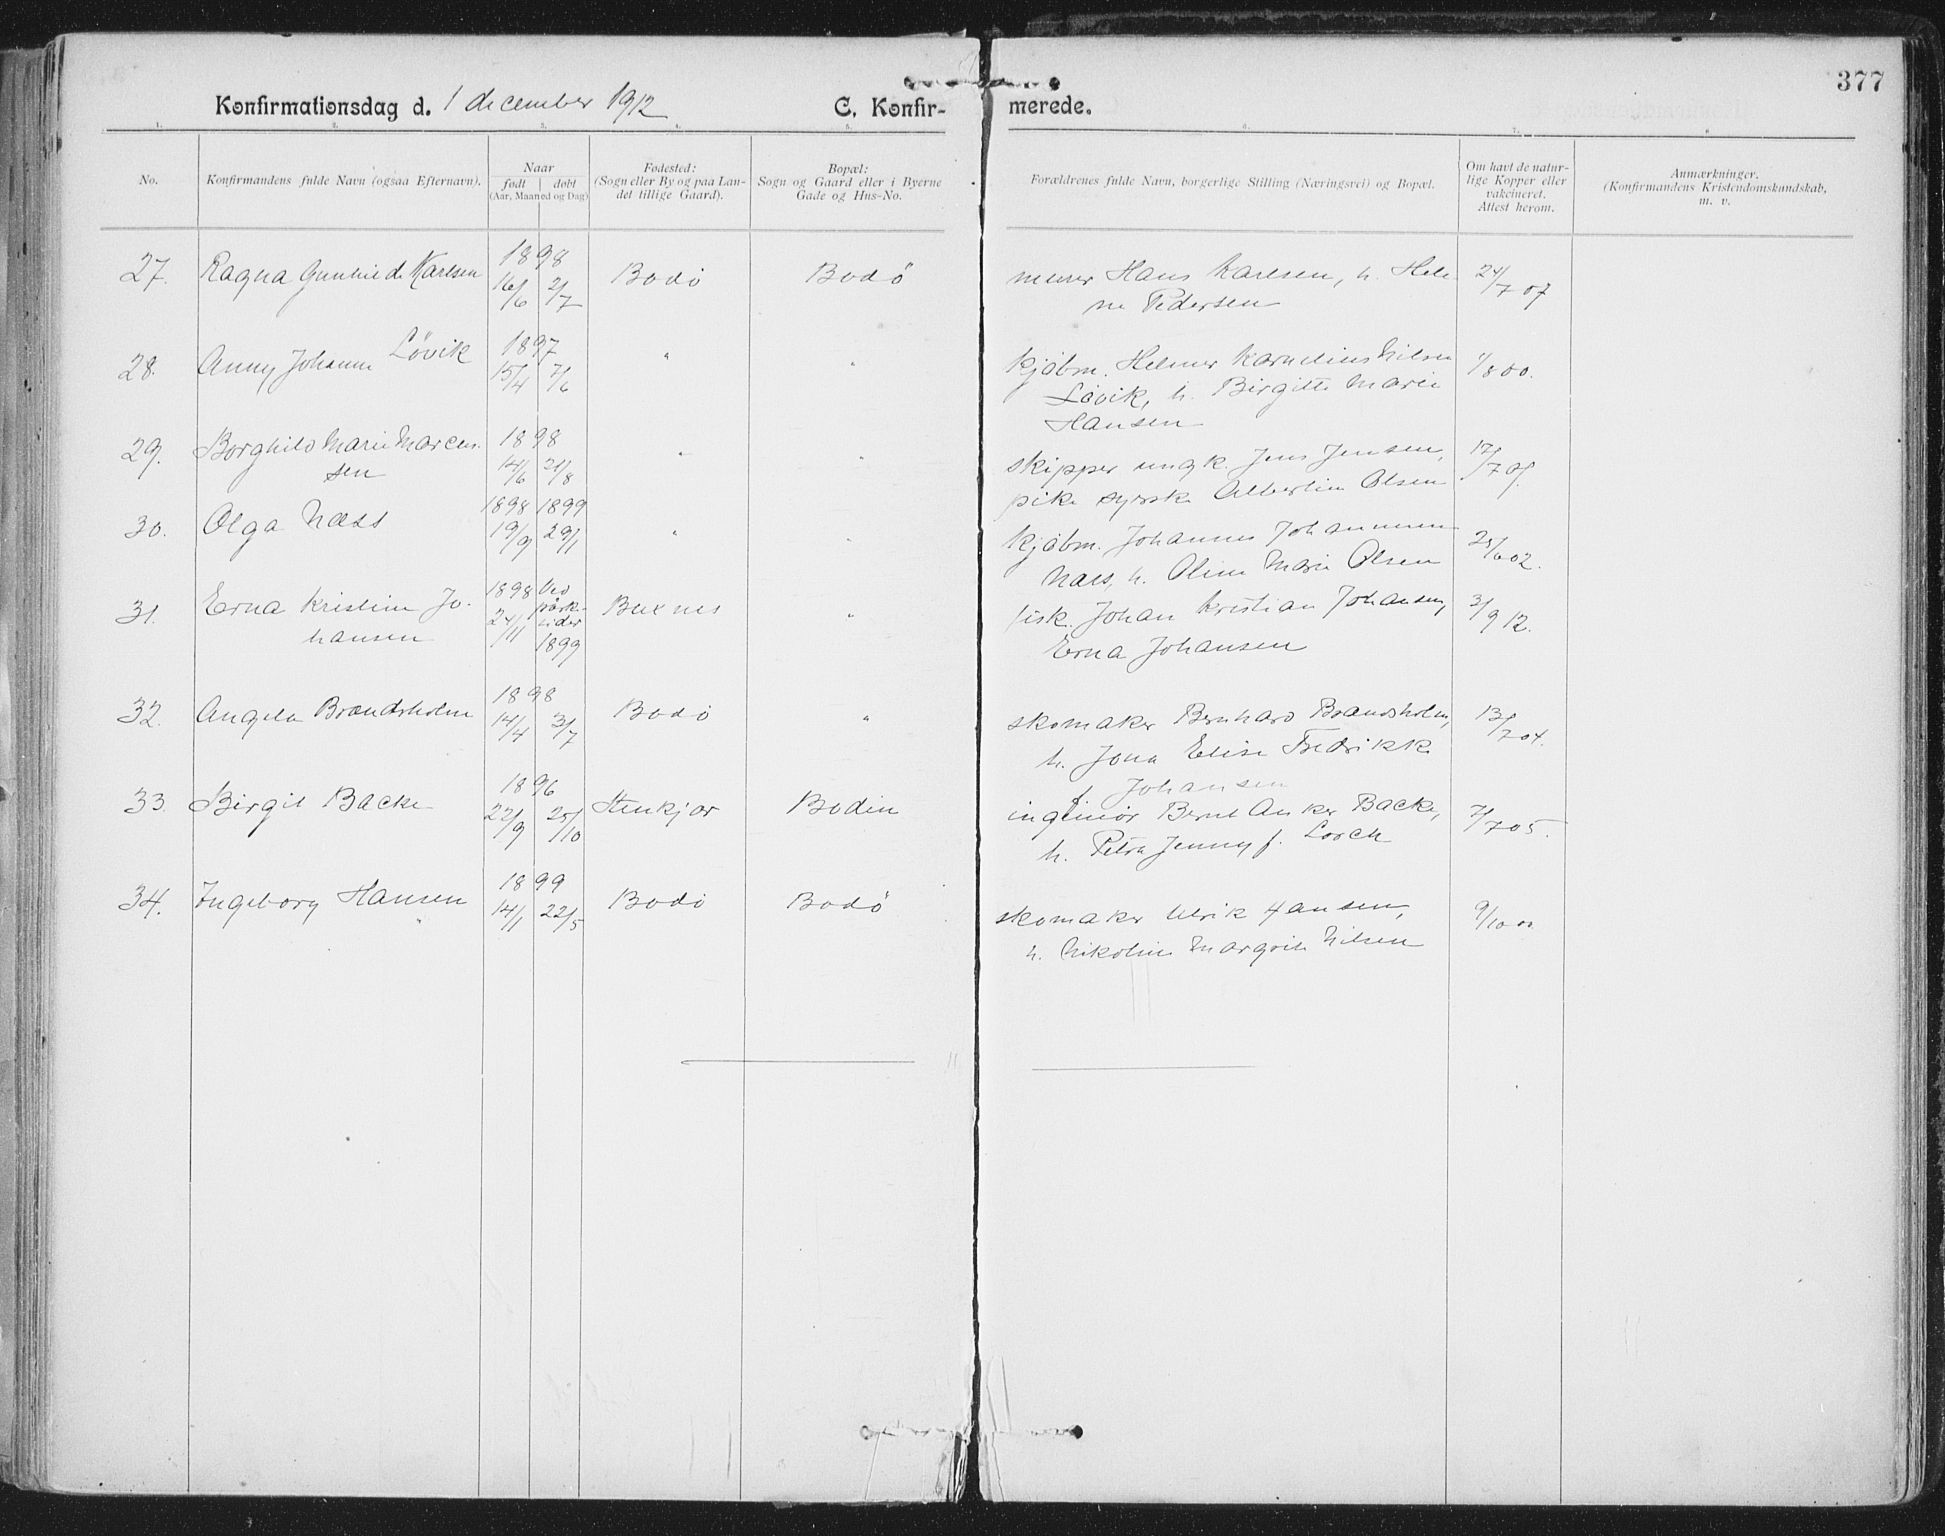 377
Konfirmationsdag d. 1 december 1912 C. Konfir- merede.
1. 2. 3. 4. 5. 6. 7. 8.
No.
Konfirmandens fulde Navn (ogsaa Efternavn).
Naar
født | døbt
(Aar, Maaned og Dag)
Fødested:
(Sogn eller By og paa Lan-
det tillige Gaard).
Bopæl:
Sogn og Gaard eller i Byerne
Gade og Hus-No.
Forældrenes fulde Navn, borgerlige Stilling (Næringsvei) og Bopæl.
Om havt de natur-
lige Kopper eller
vakcineret.
Attest herom.
Anmærkninger.
(Konfirmandens Kristendomskundskab,
m. v.
27. Ragna Gunhild Karlsen 1898 16/6 2/7 Bodö Bodö murer Hans Karlsen, h. Hele- 24/7 07
ne Pedersen
28. Anny Johanne Lövik 1897 15/4 7/6 " " kjöbm. Helmer Kornelius Nilsen 1/8 00.
Lövik, h. Birgitte Marie
Hansen
29. Borghild Marie Marcus- 1898 14/6 21/8 " " skipper ungk. Jens Jensen, 17/7 05.
sen pike syerske Albertine Olsen
30. Olga Næss 1898 19/9 1899 29/1 " " kjöbm. Johannes Johannesen
Næss, h. Oline Marie Olsen 25/6 02.
31. Erna Kristine Jo- 1898 24/11 Ved påsk- tider 1899 Buxnes " fisk. Johan Kristian Johansen, 3/9 12.
hansen Erna Johansen
32. Angela Brandsholm 1898 14/4 3/7 Bodö " skomaker Bernhard Brandsholm, 13/7 04.
h. Jona Elise Fredrikke
Johansen
33. Birgit Backe 1896 22/9 25/10 Stenkjær Bodin ingeniör Bernt Anker Backe, 7/7 05.
h. Petra Jenny f. Lorck
34. Ingeborg Hansen 1899 14/1 22/5 Bodö Bodö skomaker Ulrik Hansen, 9/10 00
h. Nikoline Margrete Nilsen